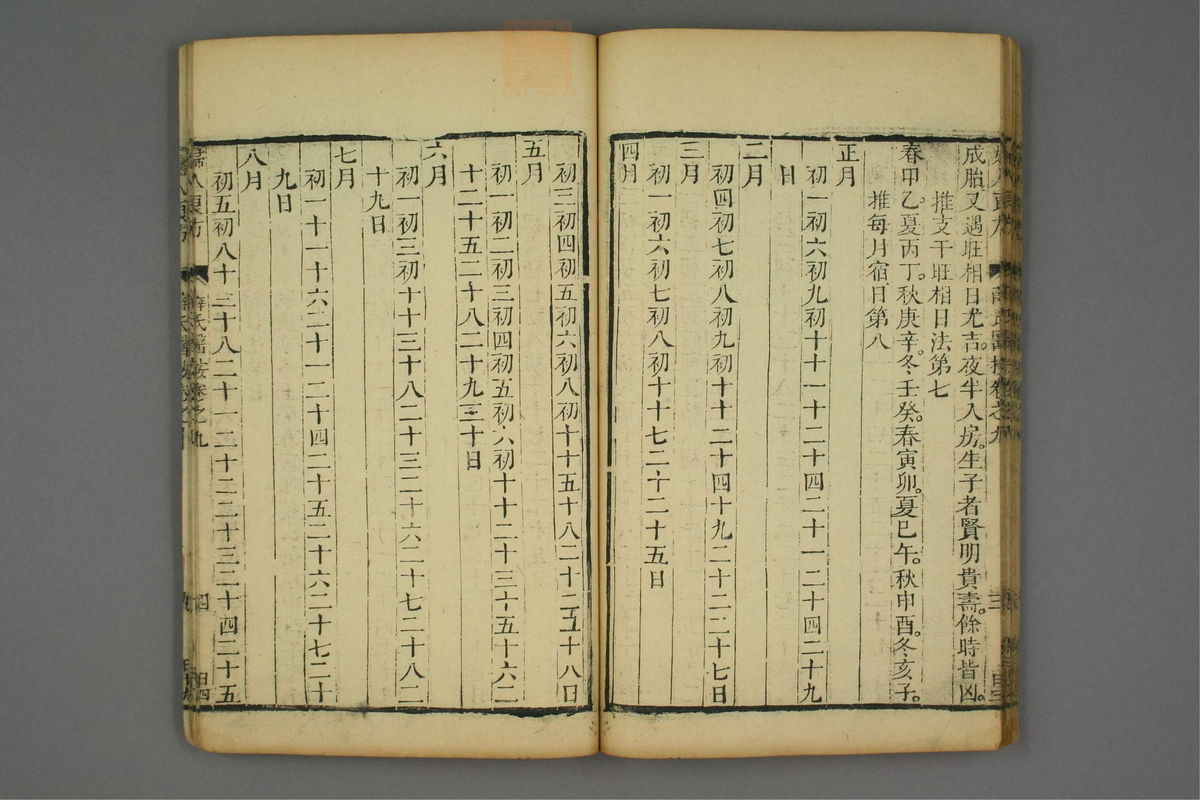 成胎又遇旺相日尤吉。夜半入房。生子者賢明貴壽。餘時皆凶。
推支干旺相日法第七
春甲乙。夏丙丁。秋庚辛。冬壬癸。春寅卯。夏巳午。秋申酉。冬亥子。
推每月宿日第八
正月
初一初六初九初十十一十二十四二十一二十四二十九
日
二月
初四初七初八初九初十十二十四十九二十二二十七日
三月
初一初六初七初八初十十七二十二十五日
四月
初三初四初五初六初八初十十五十八二十二二十八日
五月
初一初二初三初四初五初六初十十二十三十五十六二
十二十五二十八二十九三十日
六月
初一初三初十十三十八二十三二十六二十七二十八二
十九日
七月
初一十一十六二十一二十四二十五二十六二十七二十
九日
八月
初五初八十三十八二十一二十二二十三二十四二十五
婦人良方
薛氏醫按卷之九
四